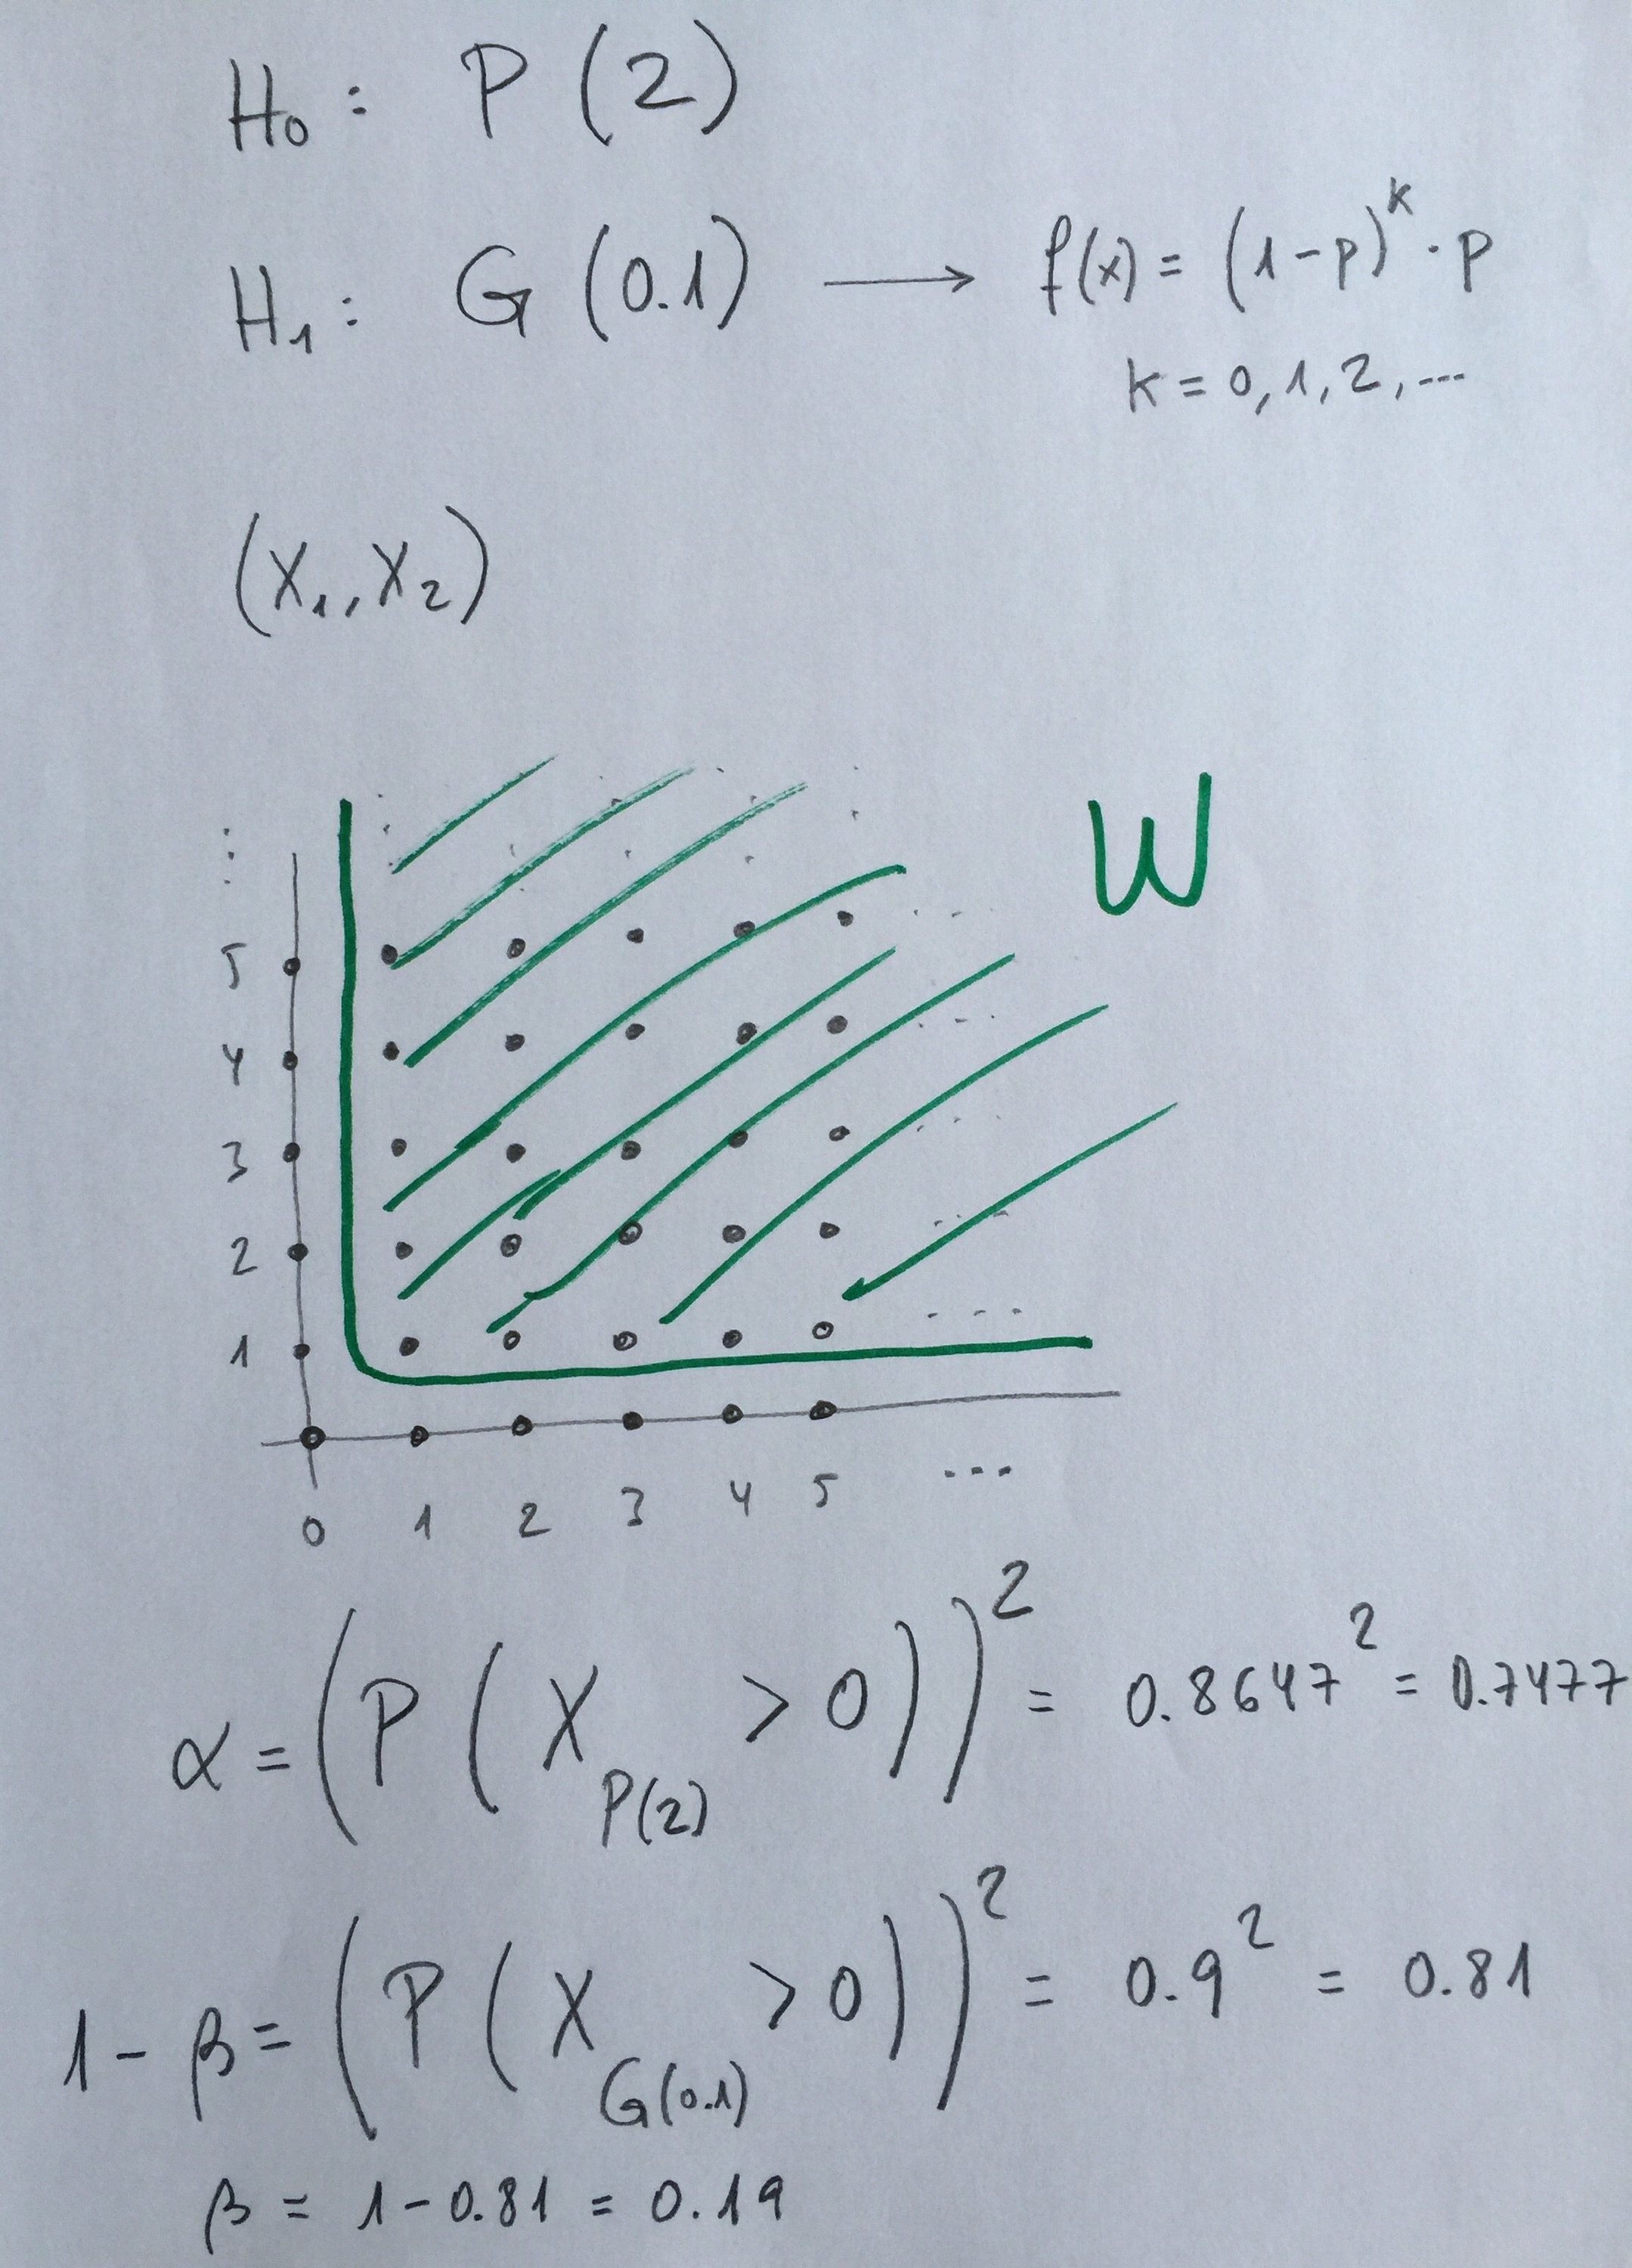 H₀ : P (2)
H₁ : G (0.1) → f(x) = (1-p)ᵏ · p
k = 0, 1, 2, ...
(X₁, X₂)
W
⋮
5
4
3
2
1
0 1 2 3 4 5 ...
α = (P (X_P(2) > 0))² = 0.8647² = 0.7477
1 - β = (P (X_G(0.1) > 0))² = 0.9² = 0.81
β = 1 - 0.81 = 0.19